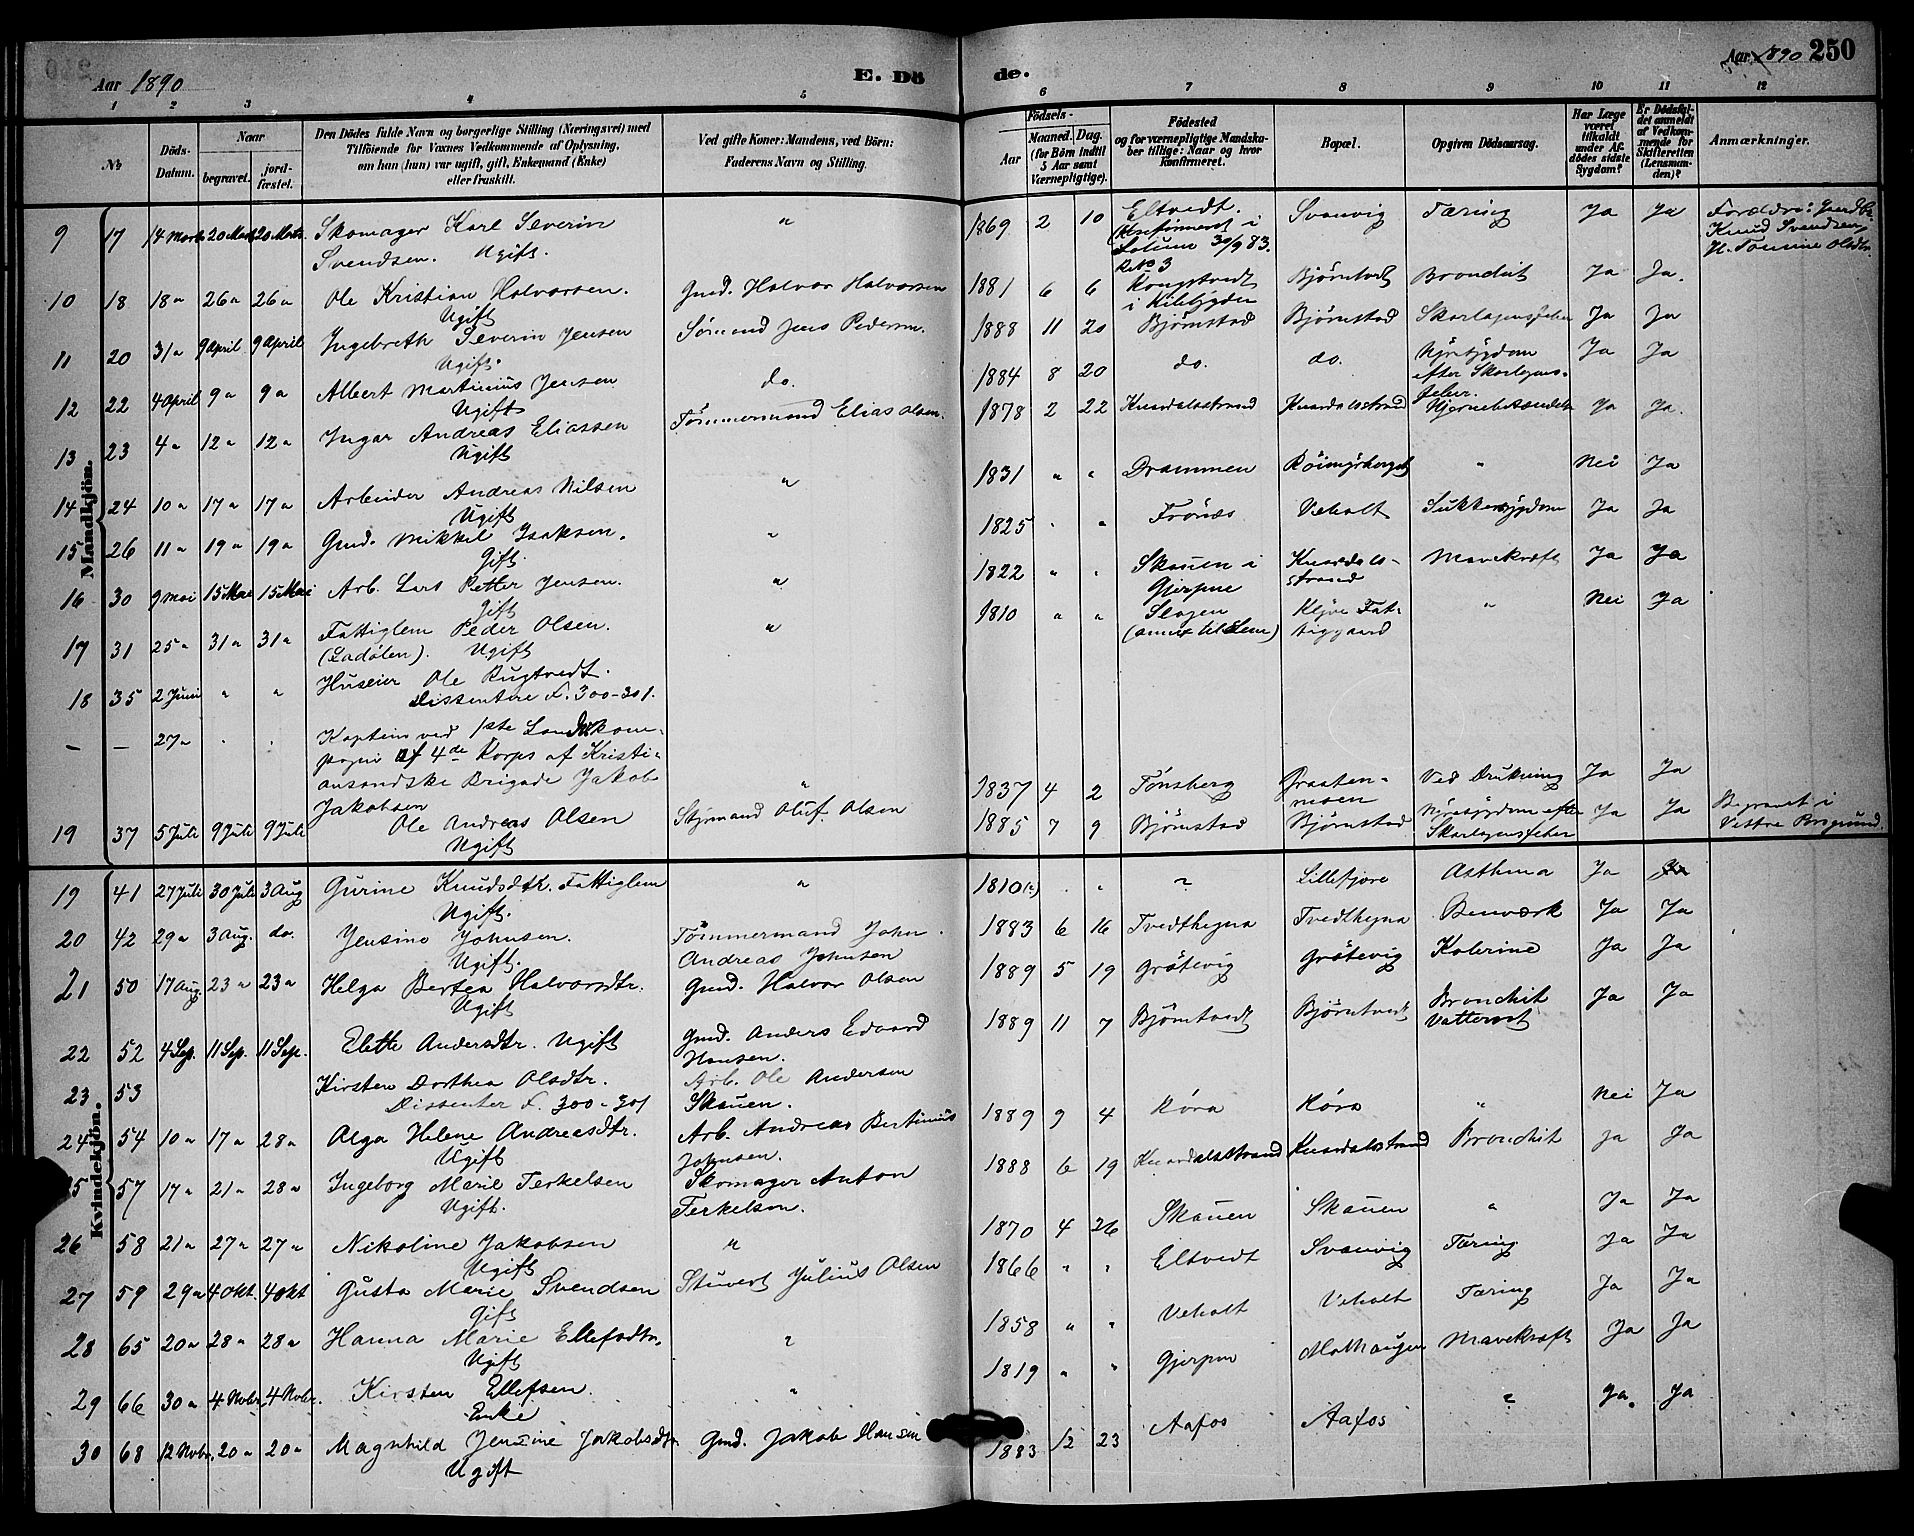 Aar 1890
E. Dö
de.
Aar 1890 250
1 2 3 4 5
6 7 8 9 10 11 12
№
Döds-Datum.
Naar
begravet.
jord-fæstet.
Den Dödes fulde Navn og borgerlige Stilling (Næringsvei) med
Tilföiende for Voxnes Vedkommende af Oplysning,
om han (hun) var ugift, gift, Enkemand (Enke)
eller fraskilt.
Ved gifte Koner: Mandens, ved Börn:
Faderens Navn og Stilling.
Födsels-
Aar
Maaned.
Dag.
(for Börn indtil
5 Aar samt
Værnepligtige).
Födested
og for værnepligtige Mandska-
ber tillige: Naar og hvor
konfirmeret.
Bopæl.
Opgiven Dödsaarsag.
Har Læge
været
tilkaldt
under Af-
dödes sidste
Sygdom?
Er Dödsfal-
det anmeldt
af Vedkom-
mende for
Skifteretten
(Lensman-
den)?
Anmærkninger.
Mandkjön.
9 17 14 Marts 20 Marts 20 Marts Skomager Karl Severin " 1869 2 10 Eltvedt. Svanvig Tæring Ja Ja Forældre:
Svendsen. Ugift. (Konfirmeret i Knud Svendsen
Solum 30/9 83. H. Tomine Olsdtr.
No 3
10 18 18 " 26 " 26 " Ole Kristian Halvorsen. Gmd. Halvor Halvorsen 1881 6 6 Rougtvedt Bjørntvedt Bronchit Ja Ja.
Ugift i Kilebygden
11 20 31 " 9 April 9 April Ingebreth Severin Jensen Sømand Jens Pedersen. 1888 11 20 Bjørnstad Bjørnstad Skarlagensfeber Ja Ja
Ugift.
12 22 4 April 9 " 9 " Albert Martinius Jensen do. 1884 8 20 do. do. Nyresygdom Ja Ja
Ugift efter Skarlagens-
feber.
13 23 4 " 12 " 12 " Ingar Andreas Eliassen Tømmermand Elias Olsen. 1878 2 22 Knardalsstrand Knardalsstrand Hjernebetændelse Ja Ja.
Ugift
14 24 10 " 17 " 17 " Arbeider Andreas Nilsen " 1831 " " Drammen Röimyrberget " Nei Ja
Ugift
15 26 11 " 19 " 19 " Gmd. Mikkel Isaksen. " 1825 " " Frönæs Veholt Sukkersygdom Ja Ja
Gift.
16 30 9 Mai 15 Mai 15 Mai Arb. Lars Petter Jensen. " 1822 " " Skauen i Knardals- Mavekræft Ja Ja
Gift Gjerpen strand
17 31 25 " 31 " 31 " Fattiglem Peder Olsen. " 1810 " " Slagen Klyve Fat- " Nei Ja
(Ladølen). Ugift (annex til Sem) tiggaard
18 35 2 Juni " " Huseier Ole Rugtvedt.
Dissentere F. 300-301.
– – 27 " . . Kaptein ved 1ste Landvkom-
pagni af 4de Korps af Kristi-
ansandske Brigade Jakob " 1837 4 2 Tønsberg Graaten- Ved Drukning Ja Ja
Jakobsen moen
19 37 5 Juli 9 Juli 9 Juli Ole Andreas Olsen Styrmand Oluf Olsen 1885 7 9 Bjørnstad Bjørnstad Nyresygdom efter Ja Ja Begravet i
Ugift Skarlagensfeber Vestre Porsgrund.
Kvindekjön.
19 41 27 Juli 30 Juli 3 Aug Gurine Knudsdtr. Fattiglem " 1810(?) . " ? Lillefjære Asthma Ja
Ugift.
20 42 29 " 3 Aug. do. Jensine Johnsen. Tömmermand John 1883 6 16 Tvedthegna Tvedthegna Benværk Ja Ja
Ugift. Andreas Johnsen
21 50 17 Aug. 23 " 23 " Helga Bertea Halvorsdtr. Gmd. Halvor Olsen 1889 5 19 Grötevig Grötevig Kolerine Ja Ja
Ugift
22 52 4 Sep. 11 Sep. 11 Sep. Elette Andersdtr. Ugift Gmd. Anders Edvard 1889 11 7 Bjørntvedt Bjørntvedt Bronchit Ja Ja
Hansen. Vattersot
23 53 Kirsten Dorthea Olsdtr. Arb. Ole Andersen
Dissenter F. 300-301 Skauen.
24 54 10 " 17 " 28 " Olga Helene Andreasdtr. Arb. Andreas Bertinius 1889 9 4 Röra Röra " Nei Ja
Ugift Johnsen.
25 57 17 " 21 " 28 " Ingeborg Marie Terkelsen Skomager Anton 1888 6 19 Knardalsstrand Knardalsstrand Bronchit Ja Ja
Ugift. Terkelsen.
26 58 21 " 27 " 27 " Nikoline Jakobsen " 1870 4 26 Skauen Skauen " Ja Ja
Ugift
27 59 29 " 4 Okt. 4 Okt Gusta Marie Svendsen Stuvert Julius Olsen 1866 " " Eltvedt Svanvig Tæring Ja Ja
Gift
28 65 20 " 28 " 28 " Hanna Marie Ellefsdtr. " 1858 " " Veholt Veholt Tæring Ja Ja
Ugift
29 66 30 " 4 Novbr. 4 Novbr. Kirsten Ellefsen. " 1819 " " Gjerpen Mavekræft Ja Ja
Enke
30 68 12 Novbr. 20 " 20 " Magnhild Jensine Jakobsdtr. Gmd. Jakob Hansen 1883 12 23 Aafos Aafos " Ja. Ja
Ugift